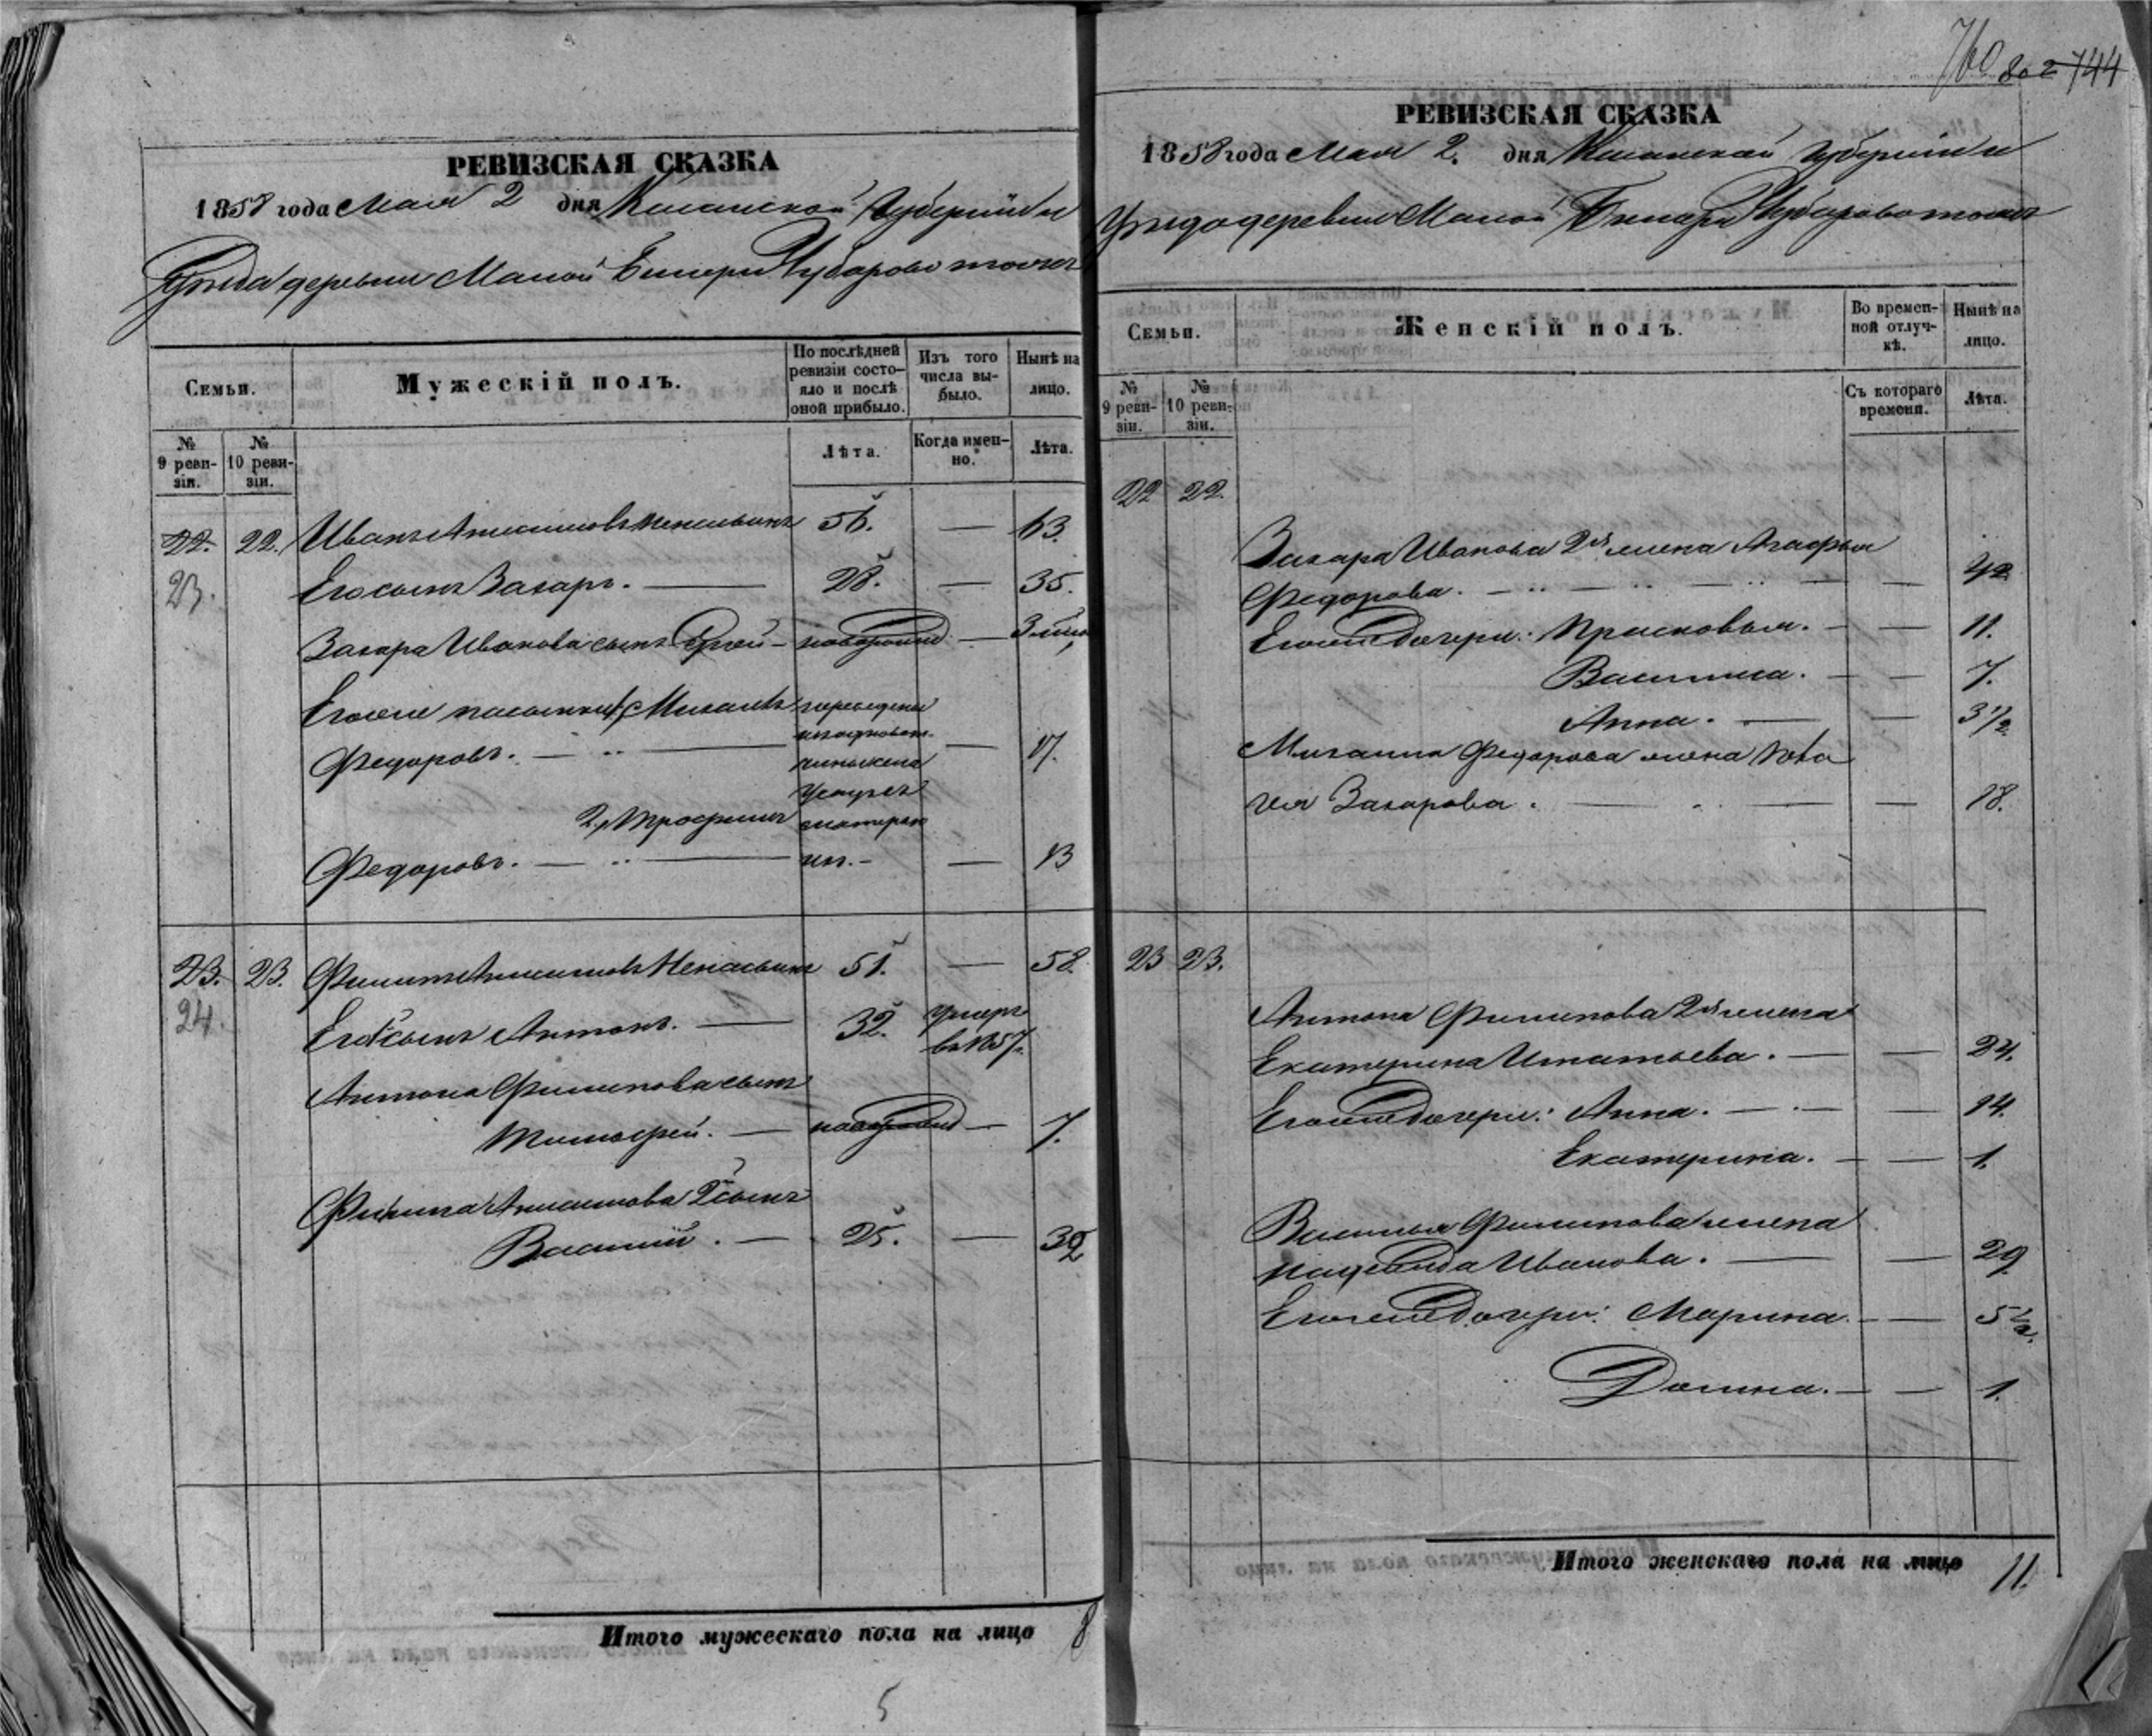 РЕВИЗСКАЯ СКАЗКА
1858 года Мая 2 дня Казанской Губерніи и
Уезда деревни Малой Чубарово тожъ
Семьи.
Мужескій полъ.
По послѣдней ревизіи состояло и послѣ оной прибыло.
Изъ того числа выбыло.
Нынѣ на лицо.
№ 9 ревизіи.
№ 10 ревизіи.
Лѣта.
Когда именно.
Лѣта.
22. 22. Иванъ 56. — 63.
23.
Его сынъ Захаръ. — 28. — 35.
Захара Иванова сынъ — новорожд — 3
Его же пасынки 1, Михаилъ переведены
Федоровъ. — — 17.
2, Трофимъ
Федоровъ. — — 13
23. 23. 51. — 58.
24.
Его 1 сынъ Антонъ. — 32. умеръ
въ 1857.
Антона Филипова сынъ
Тимофей. — новорожд — 7.
Филипа 2 сынъ
Василій. — 25. — 32
Итого мужескаго пола на лицо 8
5
760 802 744
РЕВИЗСКАЯ СКАЗКА
1858 года Мая 2. дня Казанской губерніи и
Уезда деревни Малой Чубарово тожъ
Семьи.
Женскій полъ.
Во временной отлучкѣ.
Нынѣ на лицо.
№ 9 ревизіи.
№ 10 ревизіи.
Съ котораго времени.
Лѣта.
22 22.
Захара Иванова 2я жена Агафья
Федорова. — — 42
Его же дочери: Прасковья. — — 11.
Василиса. — — 7.
Анна. — — 3 1/2
Михаила Федорова жена
Захарова. — — 18.
23 23.
Антона Филипова 2я жена
Екатерина Игнатьева. — — 24.
Его же дочери: Анна. — — 14.
Екатерина. — — 1.
Василья Филипова жена
Надежда Иванова. — — 29
Его же дочери: Марина. — — 5 1/2.
Домна. — — 1.
Итого женскаго пола на лицо 11.